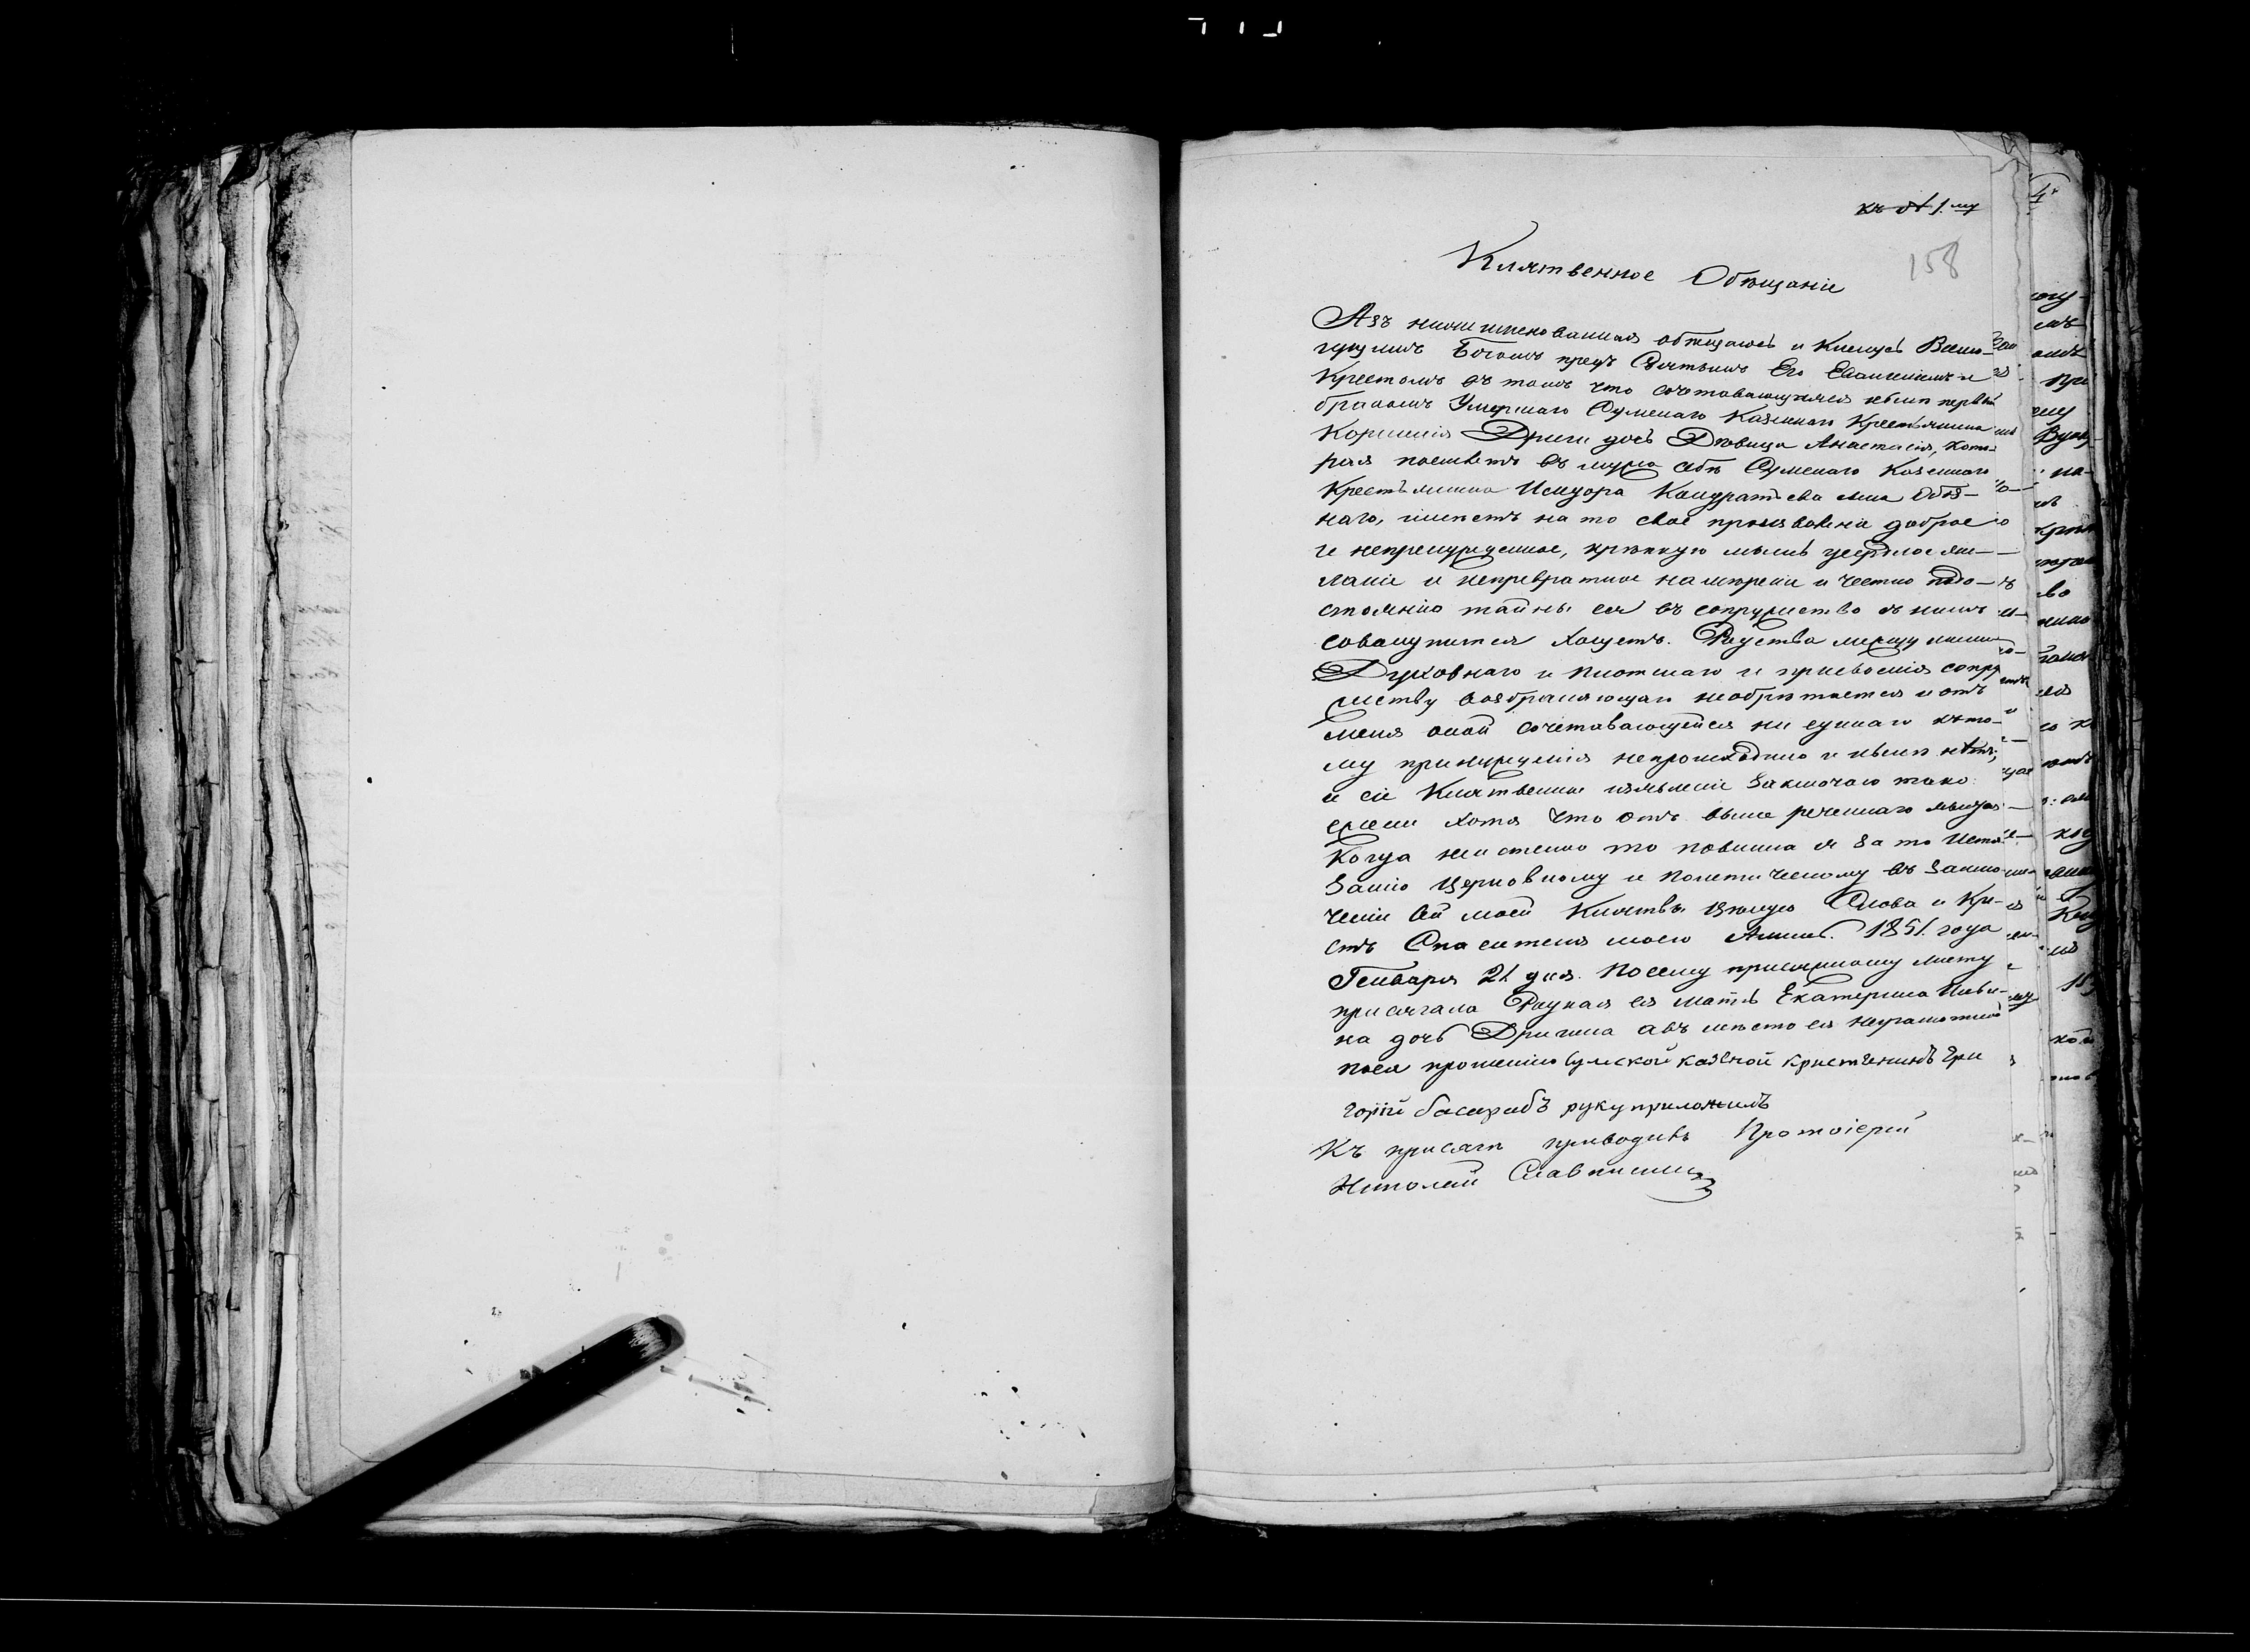 къ № 1.му
158
Клятвенное Обѣщаніе
Азъ нижеименованная обѣщаюсь и кленусь Всемо-
гущимъ Богомъ предъ Святымъ Его Евангеліемъ и
Крестомъ въ томъ что сочетавающуяся нынѣ первымъ
бракомъ Умершаго Сумскаго Казеннаго Крестьянина
Корнилія Дриги дочь Дѣвица Анастасія, кото-
рая поемлетъ въ мужа себѣ Сумскаго Казеннаго
Крестьянина Исидора Кондратьева сына
наго, имѣетъ на то свое произволеніе доброе
и непренужденное, крѣпкую мысль усердное же-
ланіе и непревратное намѣреніе и честно подо-
стоянію тайны сея въ сопружество съ нимъ
совокупитися хощетъ. Родства между ними
Духовнаго и плотскаго и присвоенія сопру
жеству возбраняющаго необрѣтается и отъ
меня оной сочетавающейся ни единаго къто-
му принужденія непроисходило и нынѣ нѣтъ,
и сіе Клятвенное изъявленіе Заключаю тако:
ежели хотя что отъ выше реченнаго явится
когда неистенно то повинна я за то Истя-
занію Церковному и политическому въ Заклю-
ченіи сей моей Клятвы цѣлую Слова и Кре-
стъ Спасителя моего Аминь. 1851. года
Генваря 21 дня. Посему присяжному листу
присягала Родная ея мать Екатерина
на дочь Дригина авъ мѣсто ея неграмотной
поея прошенію Сумской казеной кристянинъ Гри
горій басарабъ руку приложилъ
Къ присягѣ приводилъ Протоіерей
Николай